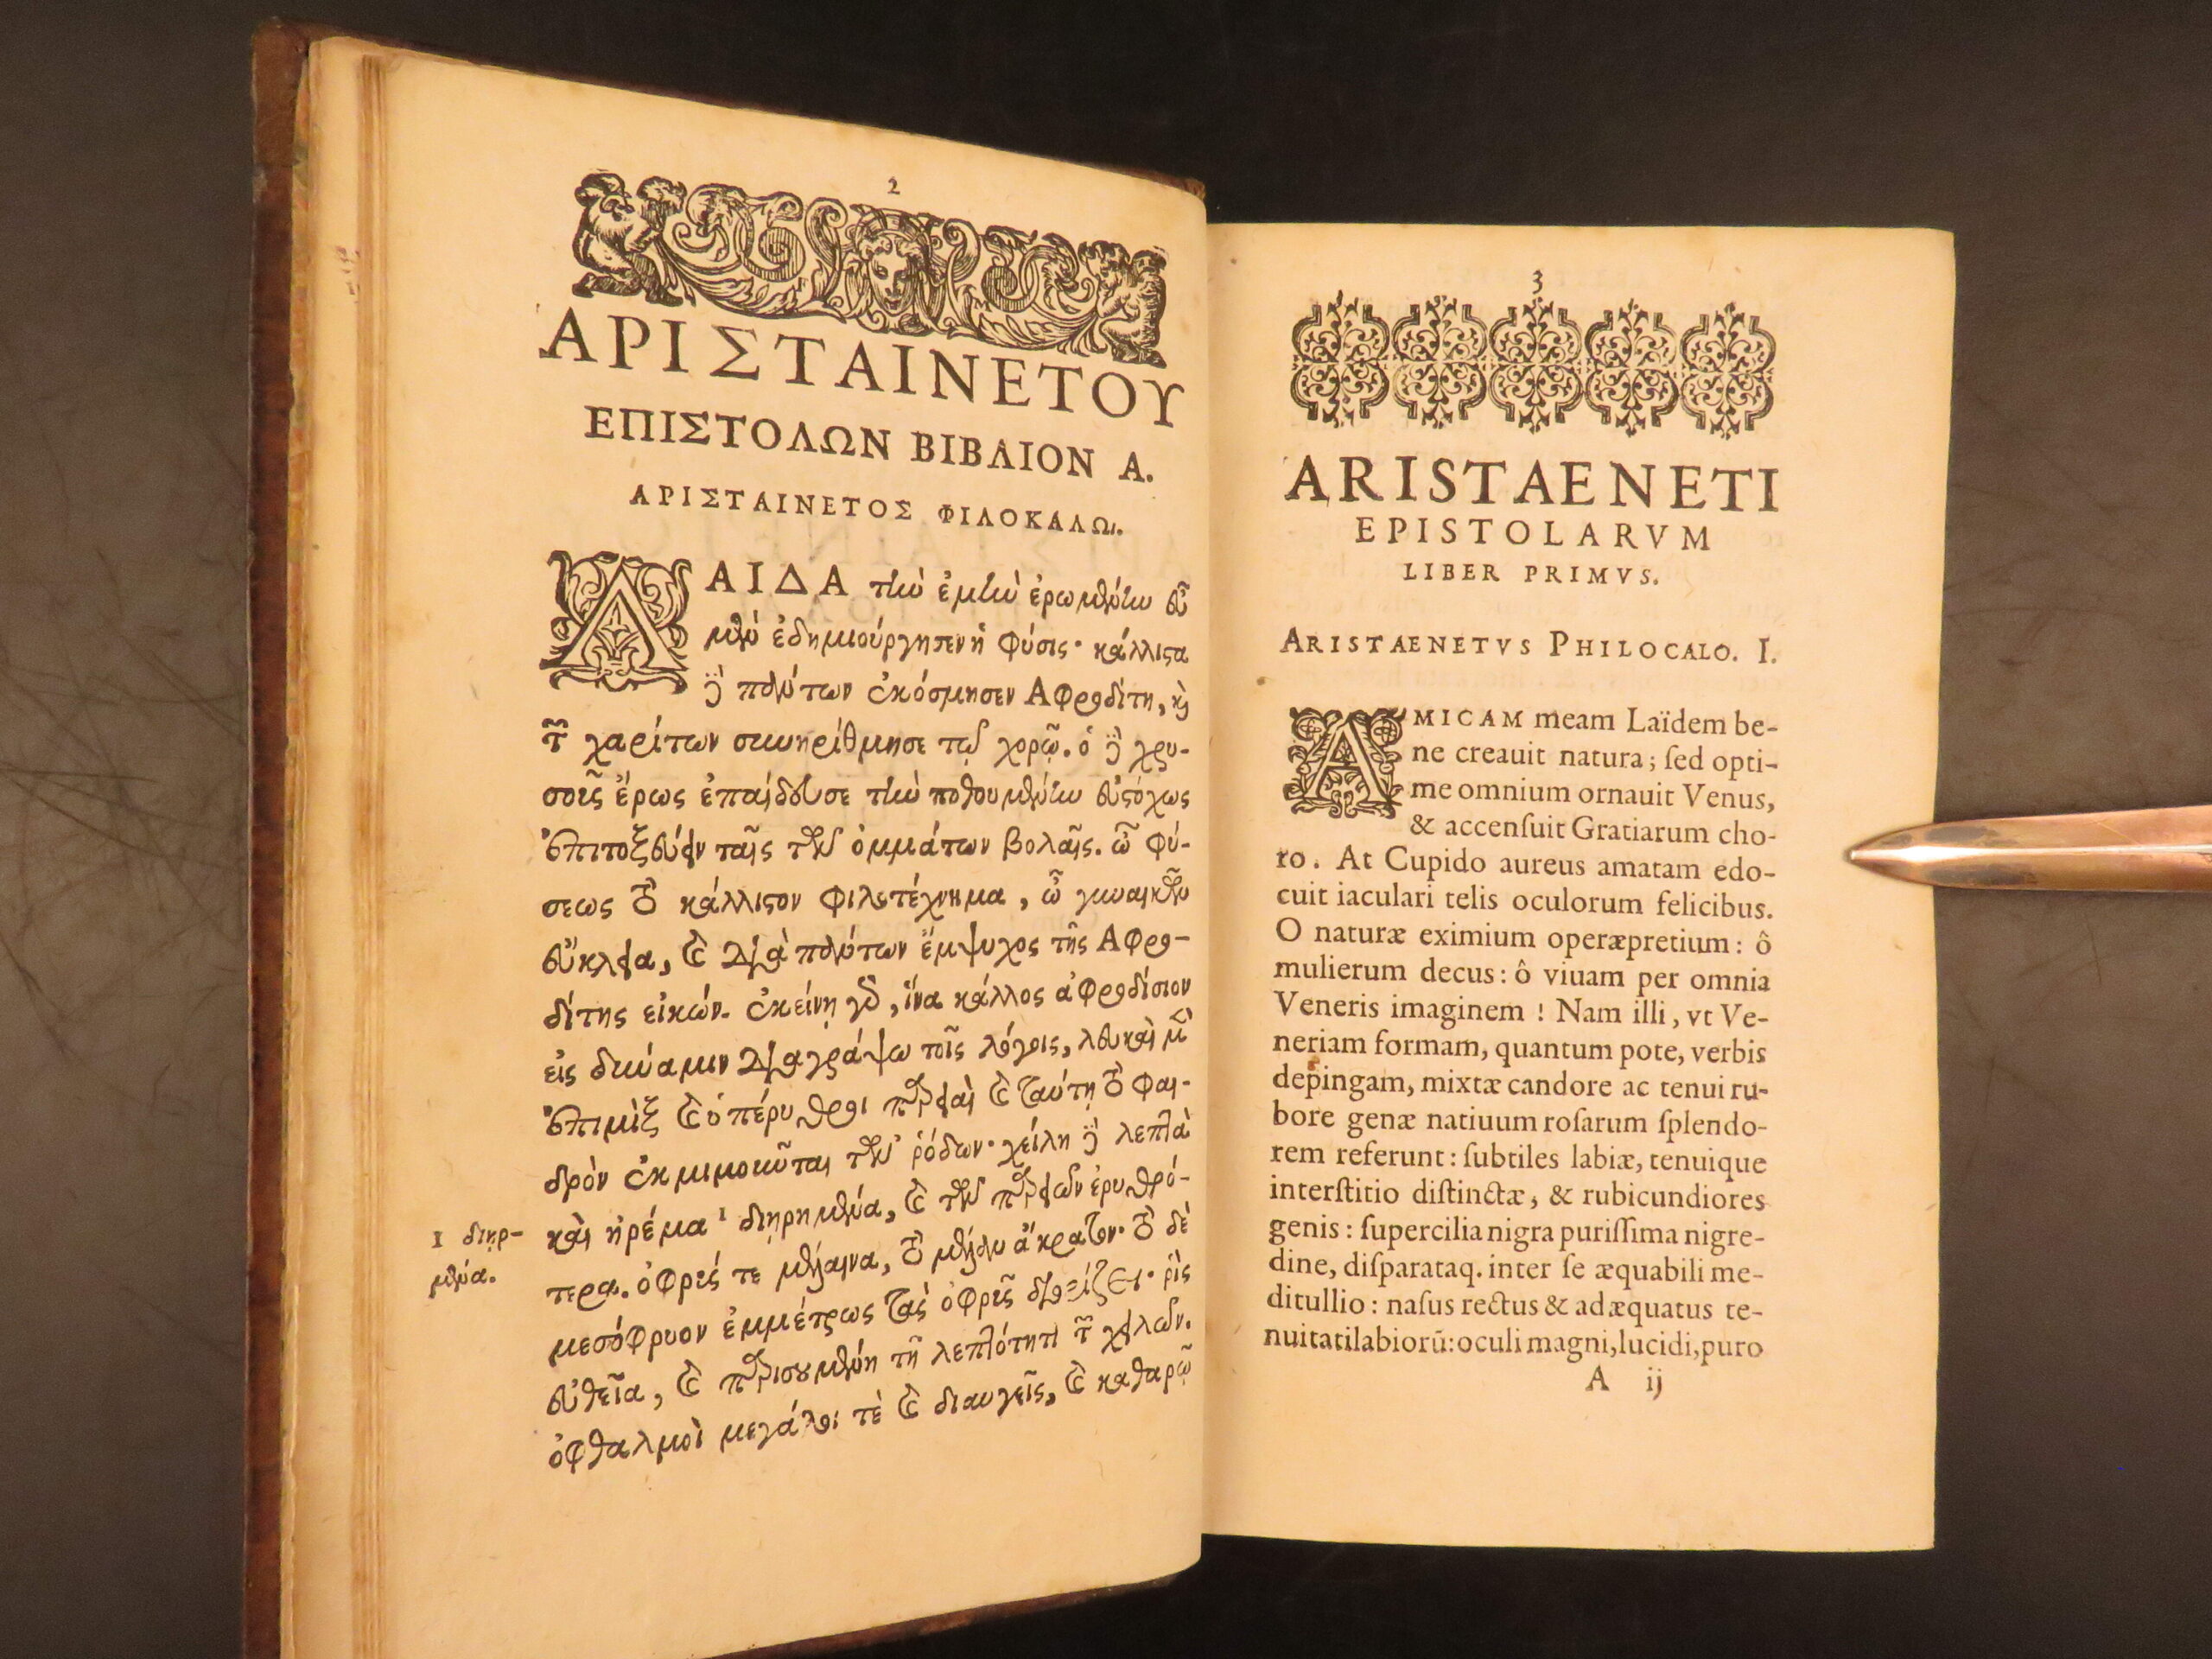 2
ΑΡΙΣΤΑΙΝΕΤΟΥ
ΕΠΙΣΤΟΛΩΝ ΒΙΒΛΙΟΝ Α.
ΑΡΙΣΤΑΙΝΕΤΟΣ ΦΙΛΟΚΑΛΩι.
ΛΑΙΔΑ τὴν ἐμὴν ἐρωμένην εὖ
μὲν ἐδημιούργησεν ἡ φύσις· κάλλιστα
δὲ πάντων ἐκόσμησεν Ἀφροδίτη, καὶ
τῶν χαρίτων συνηρίθμησε τῷ χορῷ. ὁ δὲ χρυ-
σοῦς ἔρως ἐπαίδευσε τὴν ποθουμένην εὐστόχως
ἐπιτοξεύειν ταῖς τῶν ὀμμάτων βολαῖς. ὦ φύ-
σεως τὸ κάλλιστον φιλοτέχνημα, ὦ γυναικῶν
εὔκλεια, καὶ διὰ πάντων ἔμψυχος τῆς Ἀφρο-
δίτης εἰκών. ἐκείνῃ γὰρ, ἵνα κάλλος ἀφροδίσιον
εἰς δύναμιν διαγράψω τοῖς λόγοις, λευκαὶ μὲν
ἐπιμὶξ καὶ ὑπέρυθροι παρειαὶ καὶ ταύτῃ τὸ φαι-
δρὸν ἐκμιμοῦνται τῶν ῥόδων· χείλη δὲ λεπτὰ
καὶ ἠρέμα 1 διῃρημένα, καὶ τῶν παρειῶν ἐρυθρό-
τερα. ὀφρύς τε μέλαινα, τὸ μέλαν ἄκρατον· τὸ δὲ
μεσόφρυον ἐμμέτρως τὰς ὀφρῦς διορίζει· ῥὶς
εὐθεῖα, καὶ παρισουμένη τῇ λεπτότητι τῶν χειλῶν.
ὀφθαλμοὶ μεγάλοι τὲ καὶ διαυγεῖς, καὶ καθαρῷ
1 διηρ-
μένα.
3
ARISTAENETI
EPISTOLARVM
LIBER PRIMVS.
ARISTAENETVS PHILOCALO. I.
AMICAM meam Laïdem be-
ne creauit natura; ſed opti-
me omnium ornauit Venus,
& accenſuit Gratiarum cho-
ro. At Cupido aureus amatam edo-
cuit iaculari telis oculorum felicibus.
O naturæ eximium operæpretium: ô
mulierum decus: ô viuam per omnia
Veneris imaginem! Nam illi, vt Ve-
neriam formam, quantum pote, verbis
depingam, mixtæ candore ac tenui ru-
bore genæ natiuum roſarum ſplendo-
rem referunt: ſubtiles labiæ, tenuique
interſtitio diſtinctæ, & rubicundiores
genis: ſupercilia nigra puriſſima nigre-
dine, diſparataq. inter ſe æquabili me-
ditullio: naſus rectus & adæquatus te-
nuitati labiorū: oculi magni, lucidi, puro
A ij